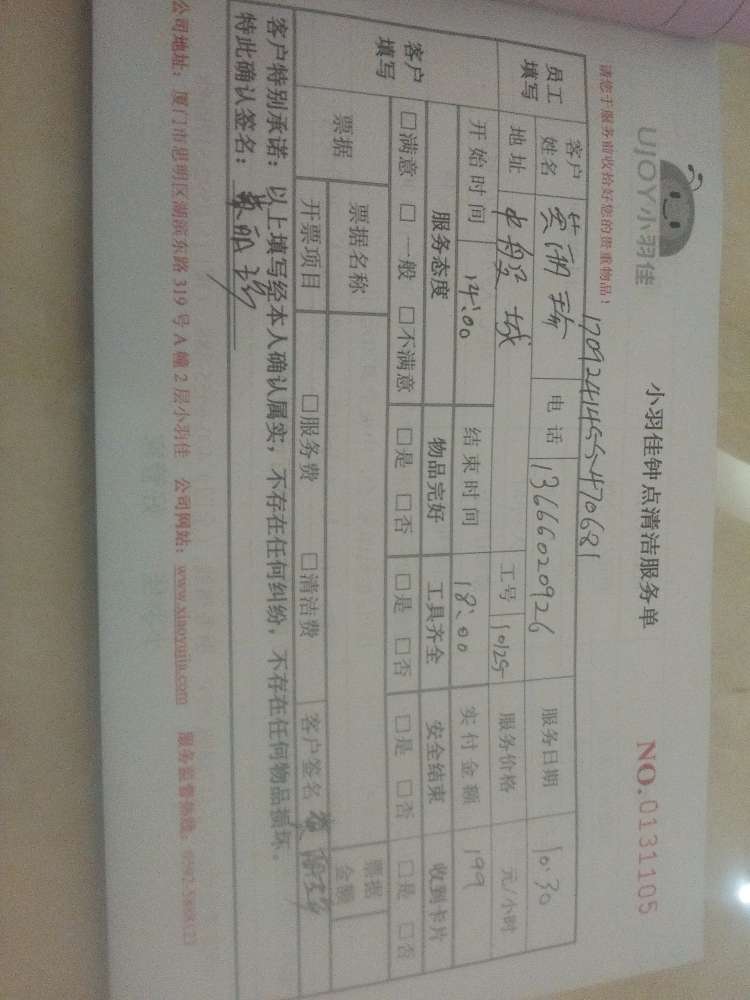 UJOY小羽佳
小羽佳钟点清洁服务单
NO.0131105
请您于服务前收拾好您的贵重物品！
1709241455470681
员工填写
客户姓名
电话 13666020926
服务日期 10:30
地址
工号 10125
服务价格 元/小时
开始时间 14:00
结束时间 18:00
实付金额 199
客户填写
服务态度 物品完好 工具齐全 安全结束 收到卡片
□满意 □一般 □不满意 □是 □否 □是 □否 □是 □否 □是 □否
票据
票据名称
票据金额
开票项目 □服务费 □清洁费 客户签名
客户特别承诺：以上填写经本人确认属实，不存在任何纠纷，不存在任何物品损坏。
特此确认签名：
公司地址：厦门市思明区湖滨东路319号A幢2层小羽佳 公司网站：www.xiaoyujia.com 服务监督热线：